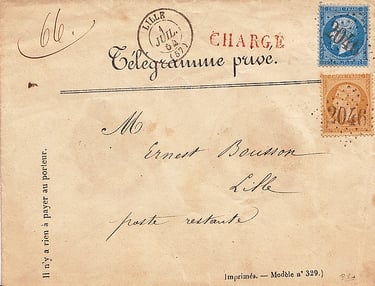 66.
LILLE
1
JUIL.
64
(57)
CHARGÉ
EMPIRE FRANC
2046
Télégramme privé.
2046
M
Ernest Bousson
Lille
poste restante
Il n'y a rien à payer au porteur.
Imprimés. — Modèle n° 329.)